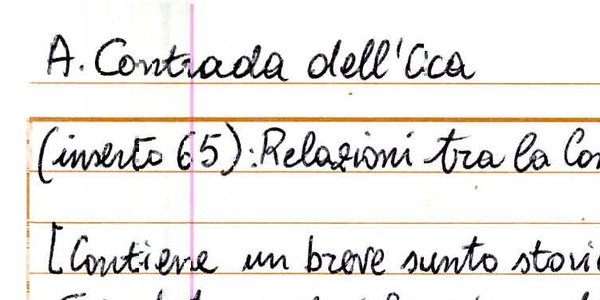 A. Contrada dell'Oca
(inserto 65): Relazioni tra la Con
[Contiene un breve sunto storic